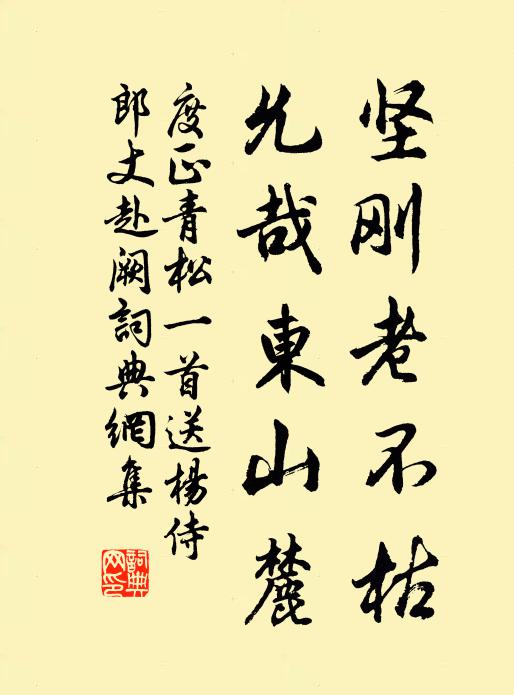 坚刚老不枯
允哉東山麓
度正青松一首送楊侍
郎丈赴阙詞典網集
詞典网印